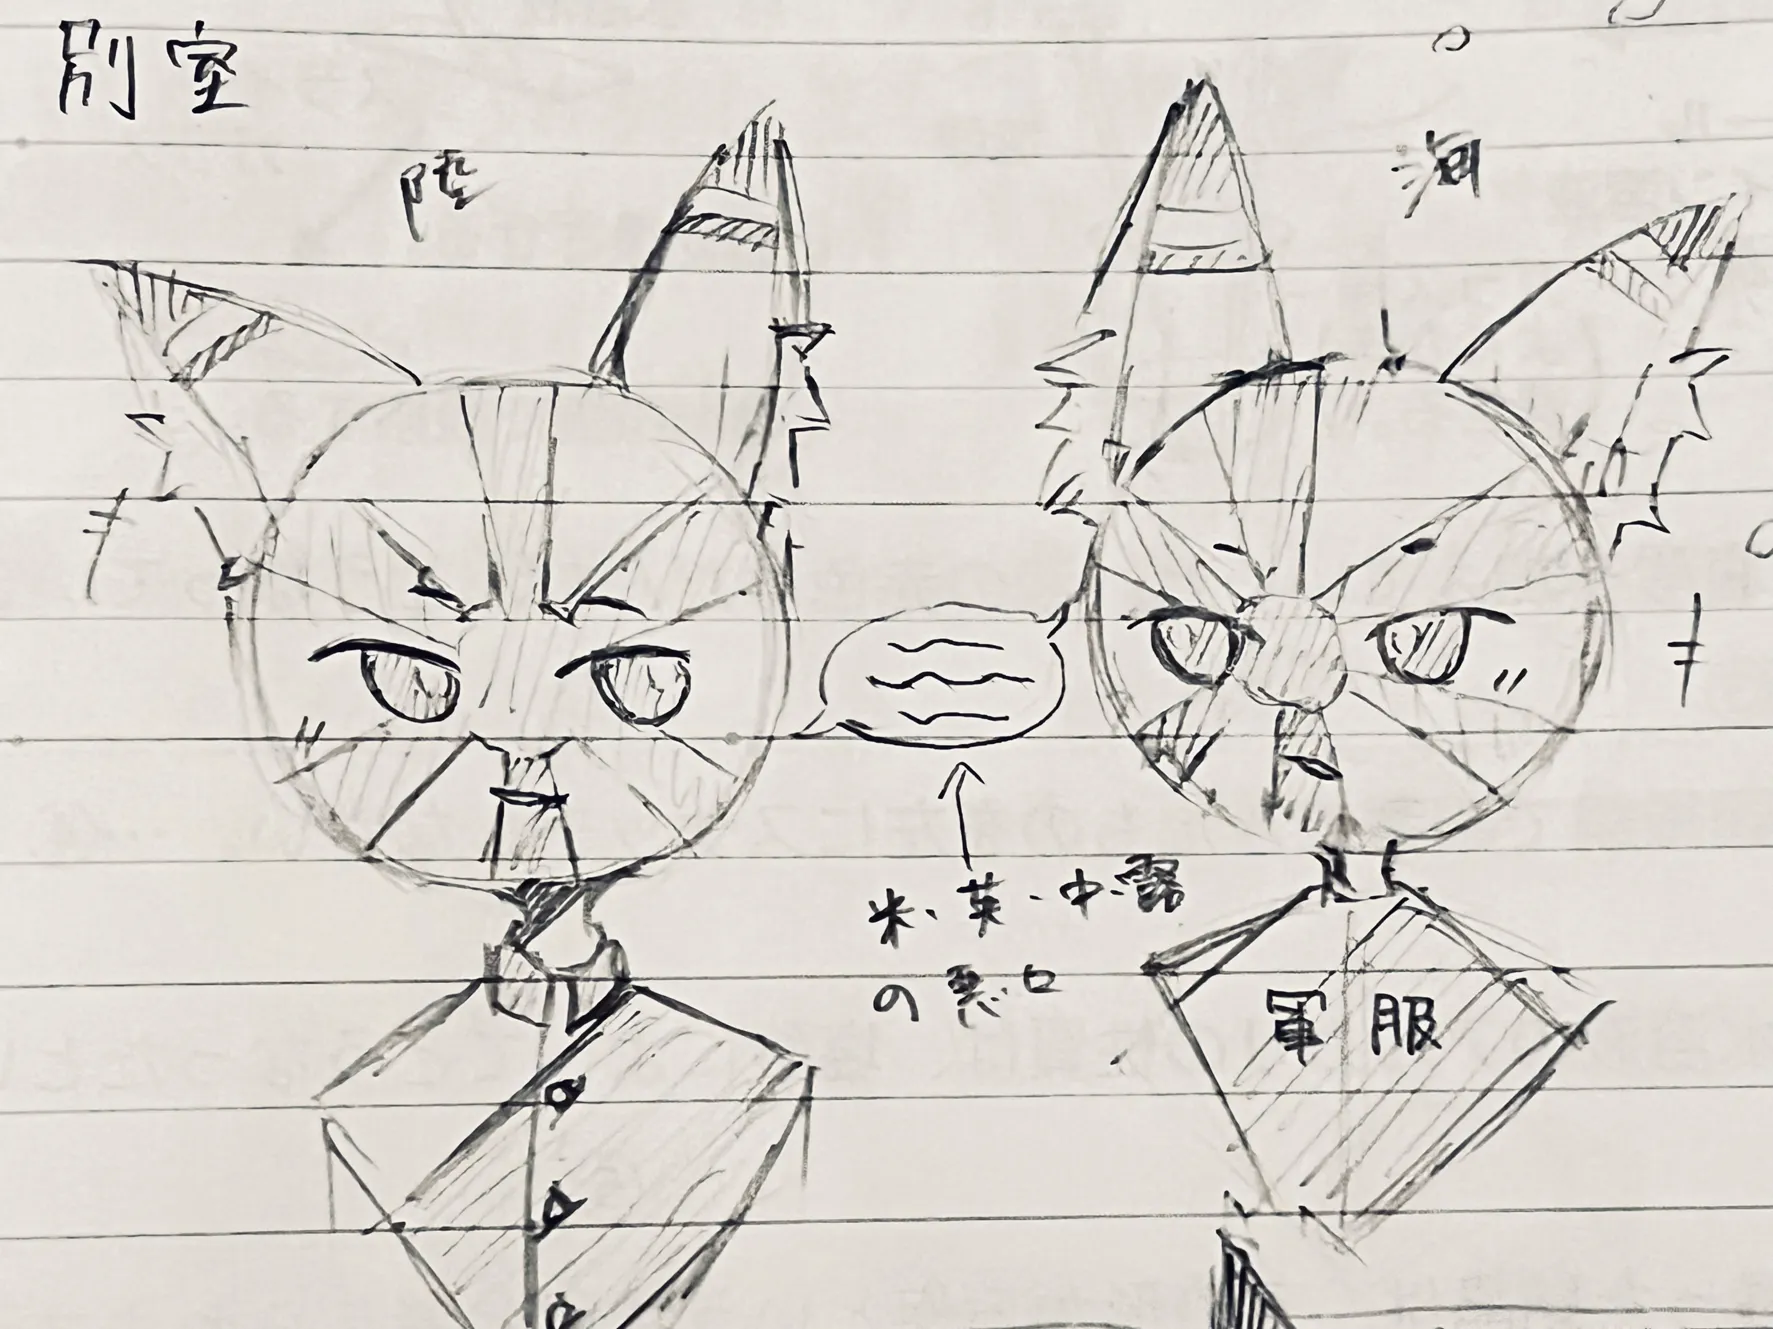 別室
陸
海
米・英・中・露
の悪口
軍服